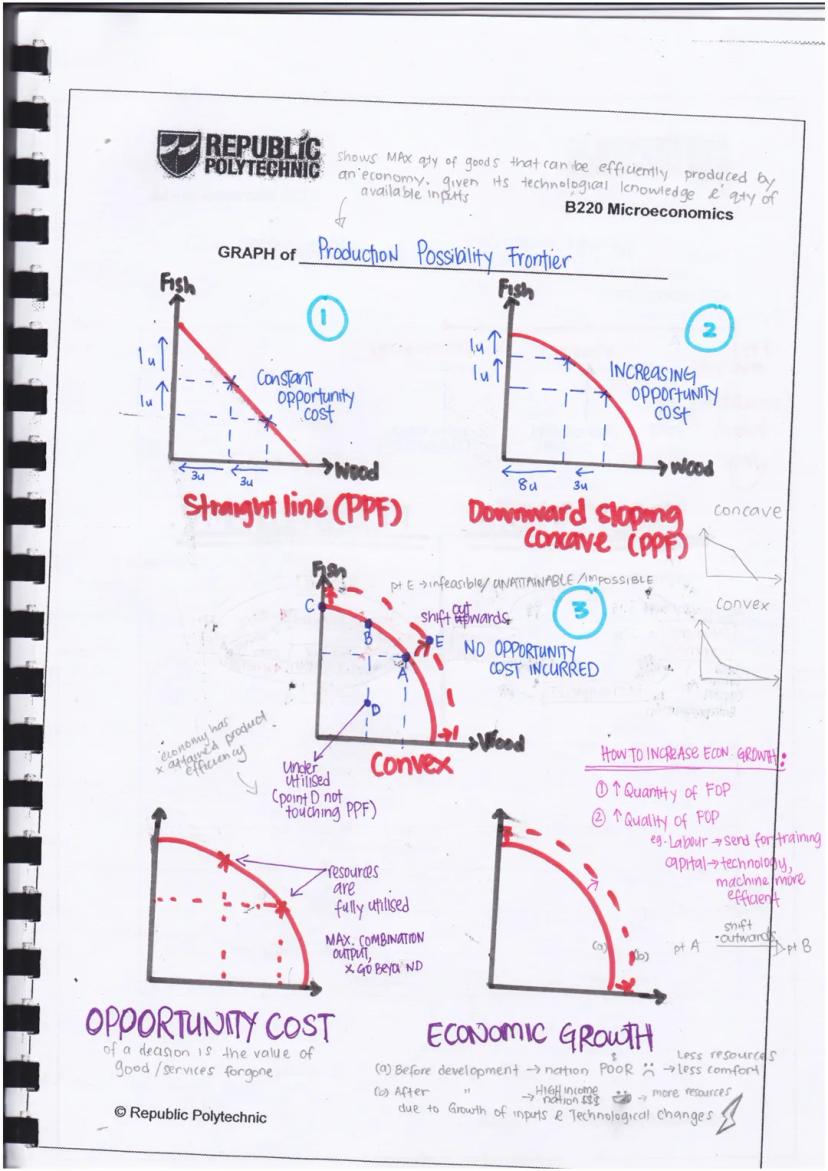 REPUBLIC
POLYTECHNIC
shows MAX qty of goods that can be efficiently produced by
an economy, given its technological knowledge & qty of
available inputs
B220 Microeconomics
GRAPH of Production Possibility Frontier
Fish
1
1u
1u
Constant
opportunity
cost
Wood
3u 3u
Straight line (PPF)
Fish
2
1u
1u
INCREASING
OPPORTUNITY
COST
Wood
8u 3u
Downward Sloping
Concave (PPF)
concave
convex
Fish
pt E → infeasible/UNATTAINABLE/IMPOSSIBLE
3
C
B
out
shift upwards
E
A
D
NO OPPORTUNITY
COST INCURRED
Wood
Convex
economy has
x attained product
efficiency
Under
utilised
(point D not
touching PPF)
HOW TO INCREASE ECON. GROWTH:
① ↑ Quantity of FOP
② ↑ Quality of FOP
eg. Labour → send for training
capital → technology,
machine more
efficient
resources
are
fully utilised
MAX. COMBINATION
OUTPUT,
x GO BEYOND
(a)
(b)
pt A shift outwards pt B
OPPORTUNITY COST
of a decision is the value of
good/services forgone
ECONOMIC GROWTH
(a) Before development → nation POOR $ → Less resources
less comfort
(b) After " → HIGH income
nation $$$ → more resources
due to Growth of inputs & Technological Changes
© Republic Polytechnic